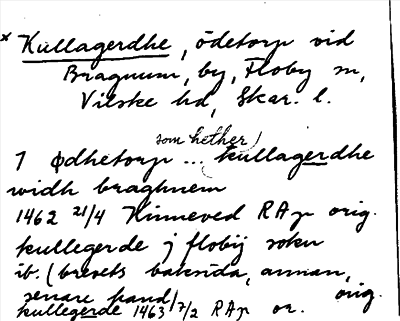 * Kullagerdhe, ödetorp vid
Bragnum, by, Floby sn,
Vilske hd, Skar. l.
som hether
1 ødhetorp ... kullagerdhe
widh braghnem
1462 21/4 Kinneved RAp orig.
kullegerde j flobij sokn
ib. (brevets baksida, annan,
senare hand) orig.
kullegerde 1463 7/2 RAp or.